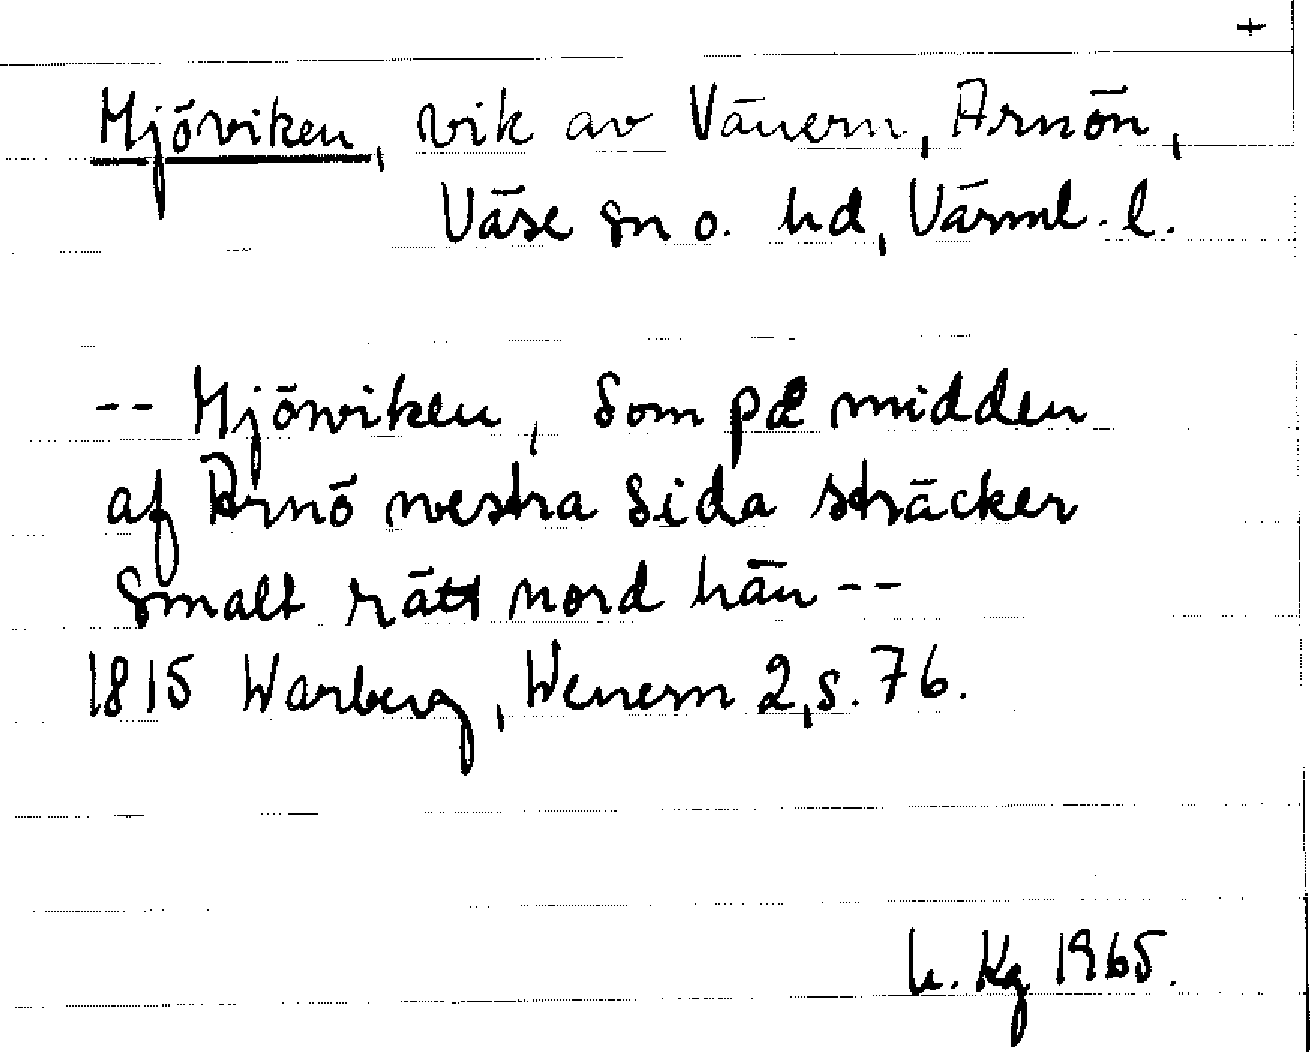 +
Mjöviken, vik av Vänern, Arnön,
Väse sn o. hd, Värml. l.
-- Mjöwiken, som på midden
af Arnö westra sida sträcker
smalt rätt nord hän --
1815 Warberg, Wenern 2, s. 76.
h. Kg 1965.